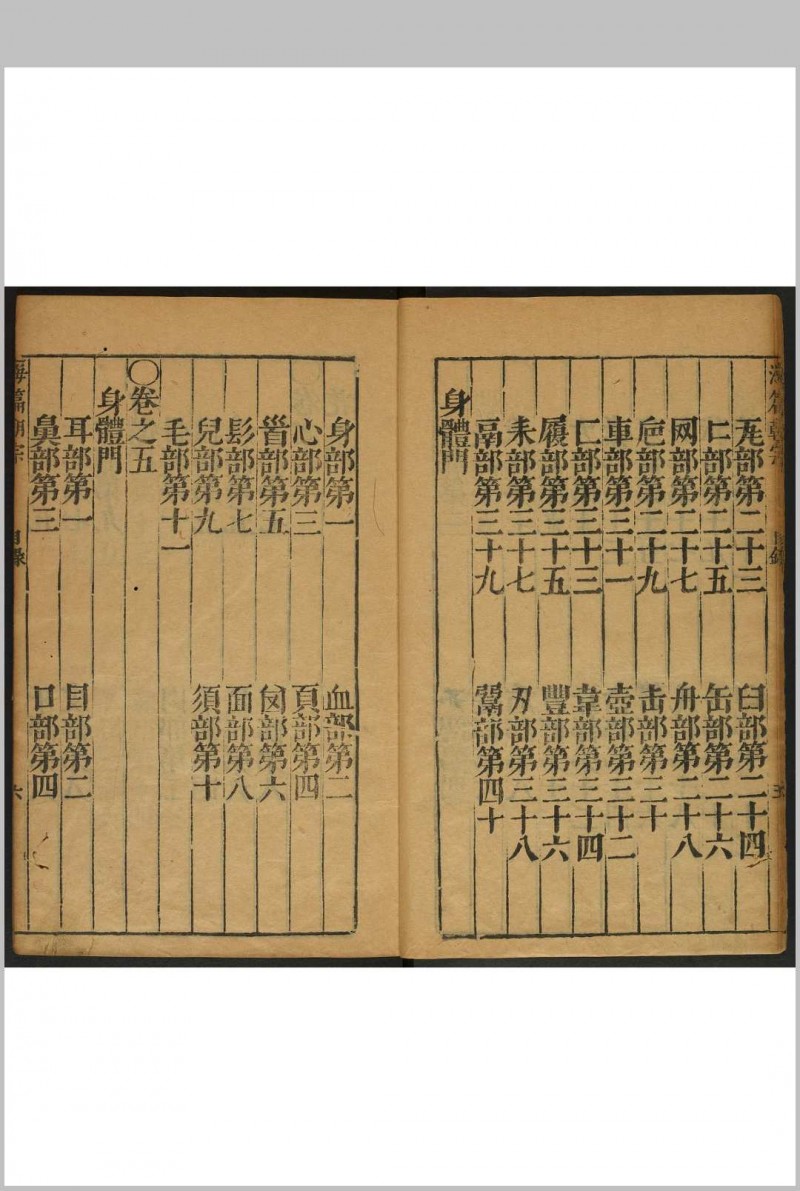 瓦部第二十三 臼部第二十四
匸部第二十五 缶部第二十六
网部第二十七 舟部第二十八
卮部第二十九 𠙹部第三十
車部第三十一 壺部第三十二
匚部第三十三 韋部第三十四
履部第三十五 豐部第三十六
耒部第三十七 刃部第三十八
鬲部第三十九 䰜部第四十
身體門
身部第一 血部第二
心部第三 頁部第四
𦣻部第五 囟部第六
髟部第七 面部第八
兒部第九 須部第十
毛部第十一
〇卷之五
身體門
耳部第一 目部第二
鼻部第三 口部第四
海篇朝宗 目錄 六